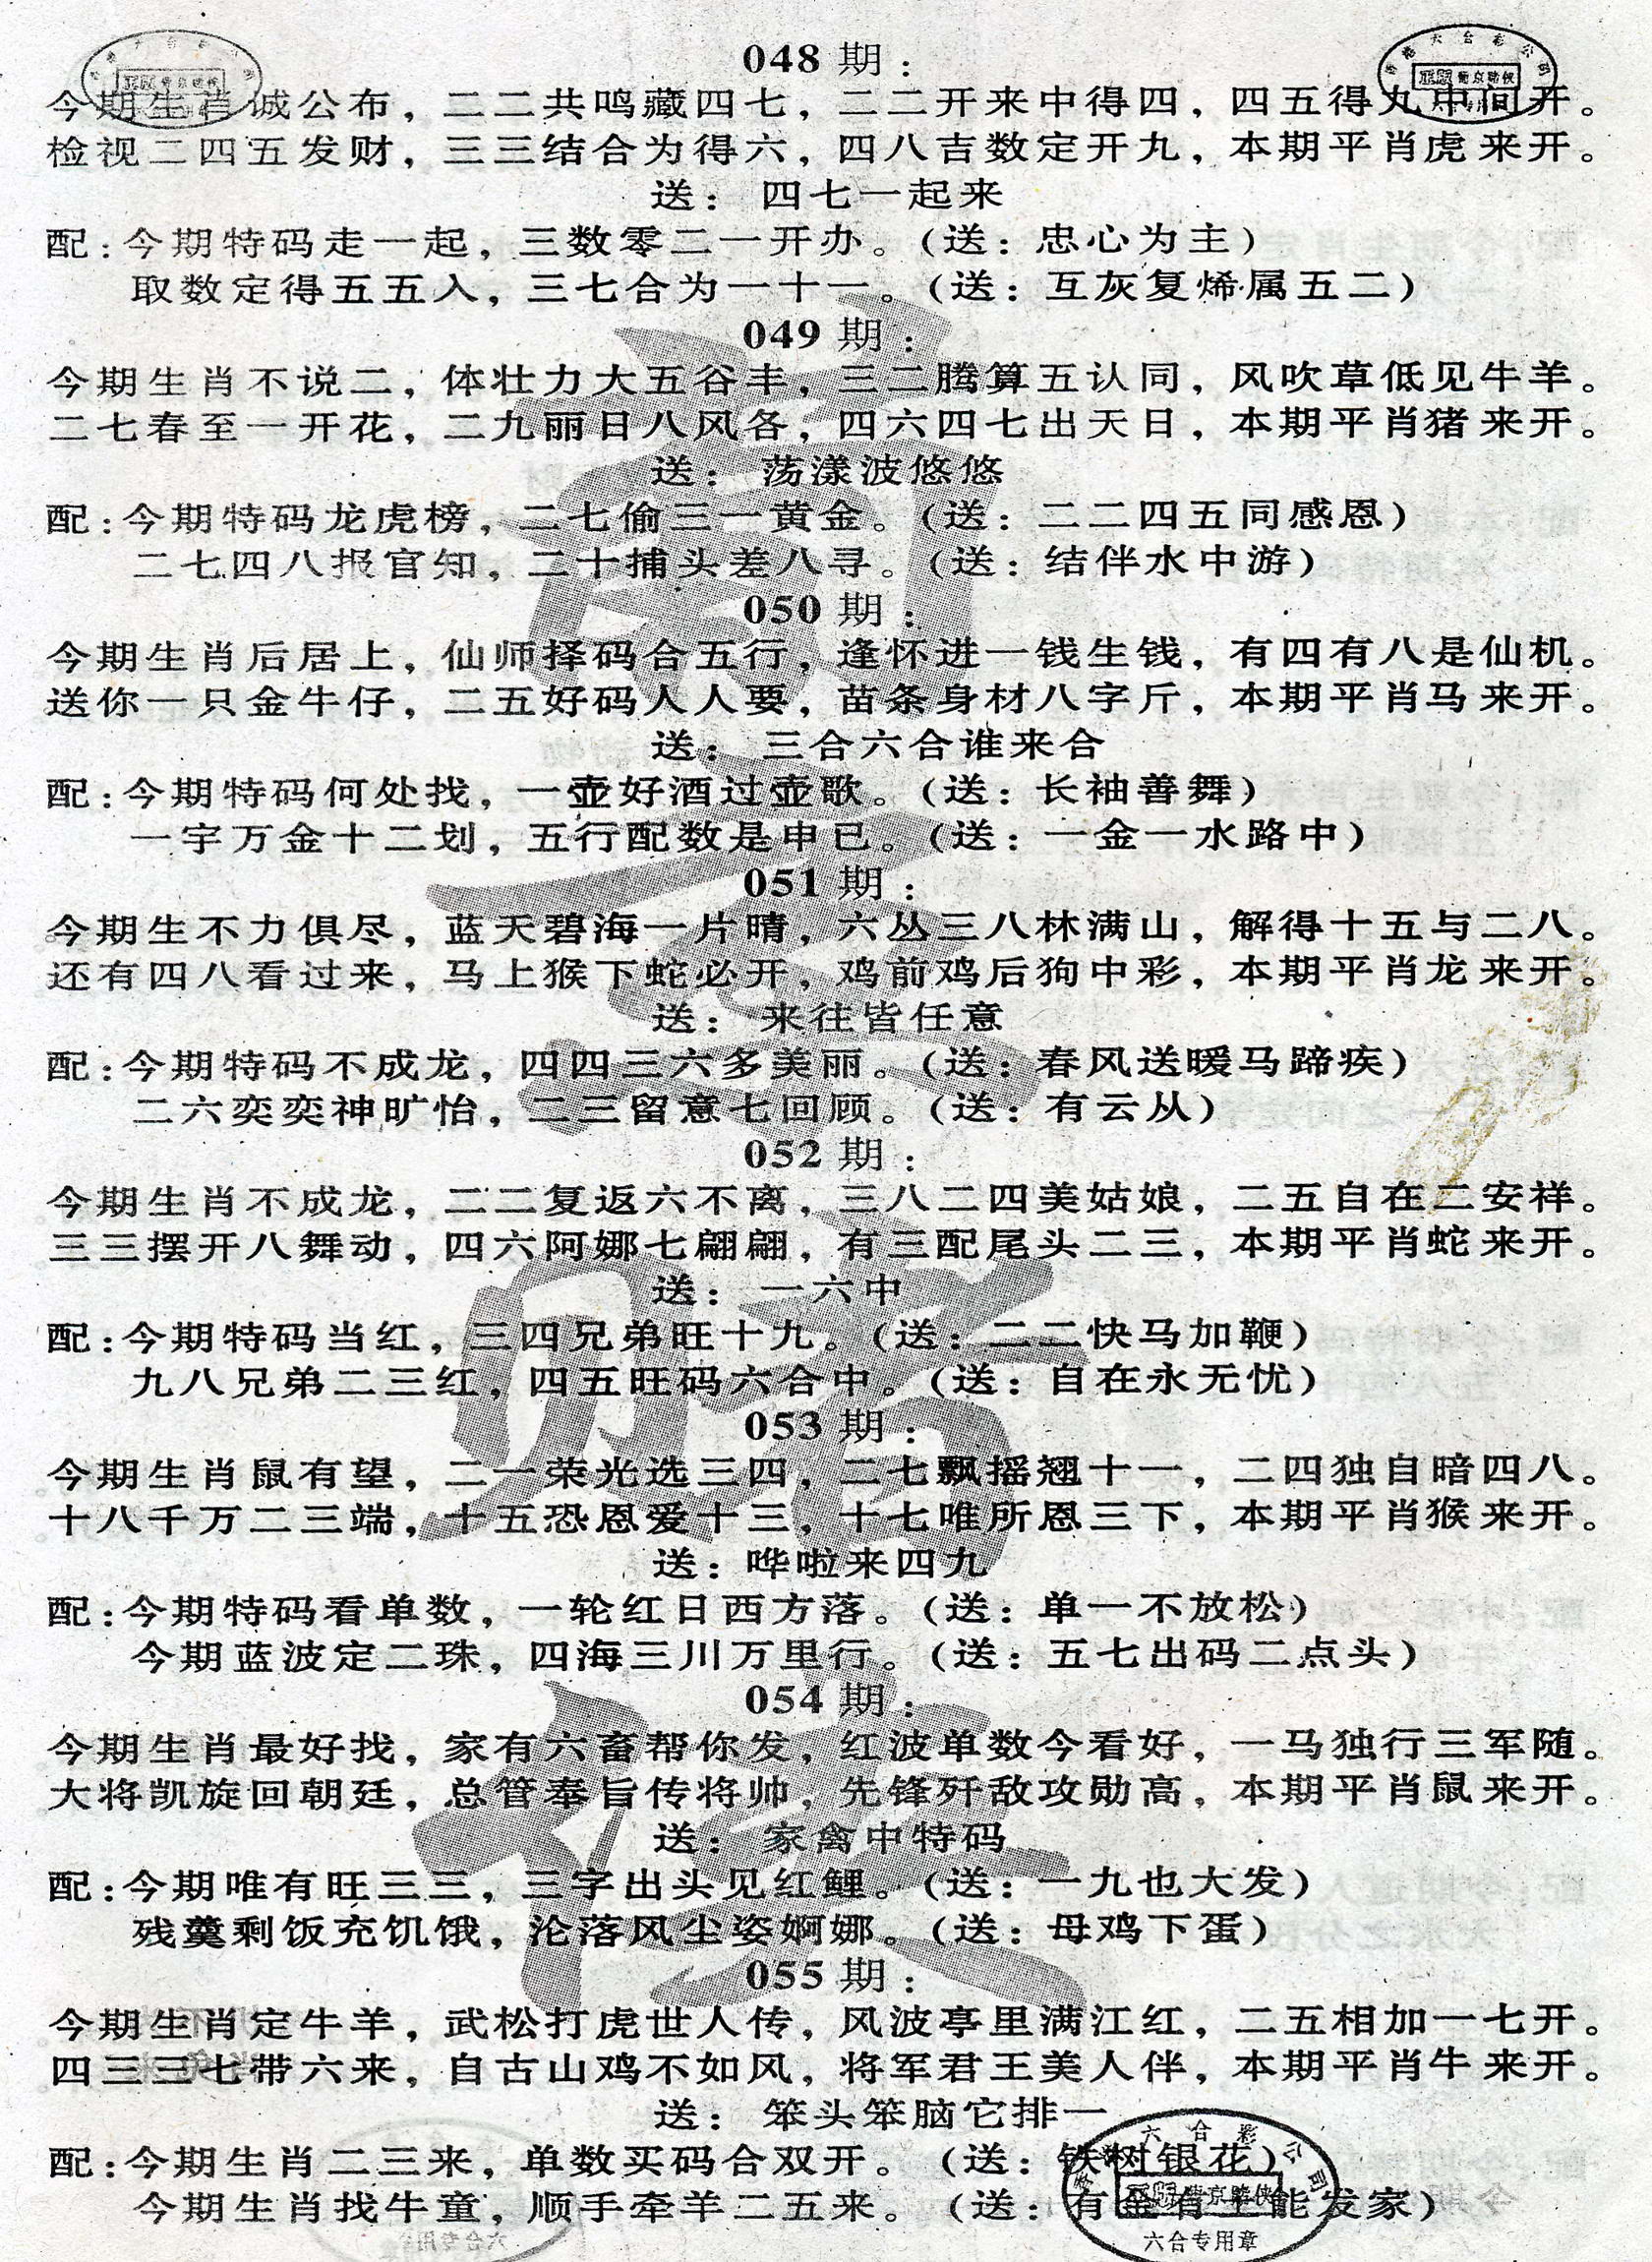 048 期：
今期生肖诚公布，二二共鸣藏四七，二二开来中得四，四五得丸中间开。
检视二四五发财，三三结合为得六，四八吉数定开九，本期平肖虎来开。
送： 四七一起来
配：今期特码走一起，三数零二一开办。（送：忠心为主）
取数定得五五入，三七合为一十一。（送：互灰复烯属五二）
049 期：
今期生肖不说二，体壮力大五谷丰，三二腾算五认同，风吹草低见牛羊。
二七春至一开花，二九丽日八风各，四六四七出天日，本期平肖猪来开。
送： 荡漾波悠悠
配：今期特码龙虎榜，二七偷三一黄金。（送：二二四五同感恩）
二七四八报官知，二十捕头差八寻。（送：结伴水中游）
050 期：
今期生肖后居上，仙师择码合五行，逢怀进一钱生钱，有四有八是仙机。
送你一只金牛仔，二五好码人人要，苗条身材八字斤，本期平肖马来开。
送： 三合六合谁来合
配：今期特码何处找，一壶好酒过壶歌。（送：长袖善舞）
一宇万金十二划，五行配数是申已。（送：一金一水路中）
051 期：
今期生不力俱尽，蓝天碧海一片晴，六丛三八林满山，解得十五与二八。
还有四八看过来，马上猴下蛇必开，鸡前鸡后狗中彩，本期平肖龙来开。
送： 来往皆任意
配：今期特码不成龙，四四三六多美丽。（送：春风送暖马蹄疾）
二六奕奕神旷怡，二三留意七回顾。（送：有云从）
052 期：
今期生肖不成龙，二二复返六不离，三八二四美姑娘，二五自在二安祥。
三三摆开八舞动，四六阿娜七翩翩，有三配尾头二三，本期平肖蛇来开。
送： 一六中
配：今期特码当红，三四兄弟旺十九。（送：二二快马加鞭）
九八兄弟二三红，四五旺码六合中。（送：自在永无忧）
053 期：
今期生肖鼠有望，二一荣光选三四，二七飘摇翘十一，二四独自暗四八。
十八千万二三端，十五恐恩爱十三，十七唯所恩三下，本期平肖猴来开。
送：哗啦来四九
配：今期特码看单数，一轮红日西方落。（送：单一不放松）
今期蓝波定二珠，四海三川万里行。（送：五七出码二点头）
054 期：
今期生肖最好找，家有六畜帮你发，红波单数今看好，一马独行三军随。
大将凯旋回朝廷，总管奉旨传将帅，先锋歼敌攻勋高，本期平肖鼠来开。
送： 家禽中特码
配：今期唯有旺三三，三字出头见红鲤。（送：一九也大发）
残羹剩饭充饥饿，沦落风尘姿婀娜。（送：母鸡下蛋）
055 期：
今期生肖定牛羊，武松打虎世人传，风波亭里满江红，二五相加一七开。
四三三七带六来，自古山鸡不如风，将军君王美人伴，本期平肖牛来开。
送： 笨头笨脑它排一
配：今期生肖二三来，单数买码合双开。（送：铁树银花）
今期生肖找牛童，顺手牵羊二五来。（送：有金有土能发家）
六合专用章